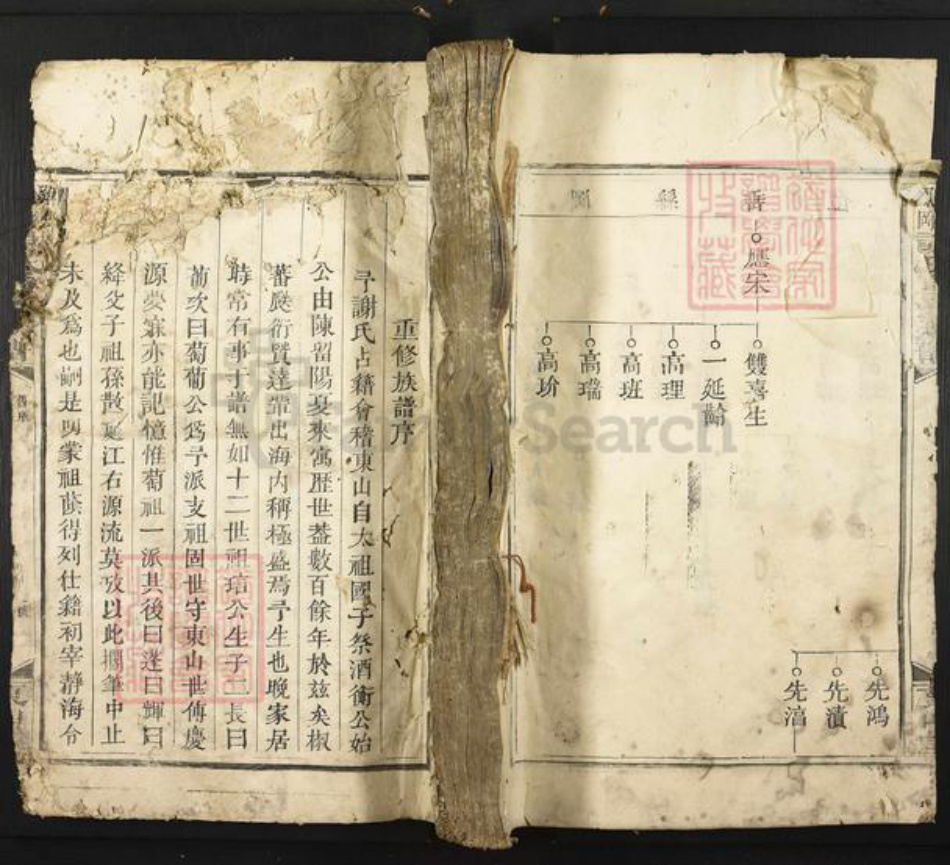 世系圖
善
應宋
雙喜生
一延齡
高理
高班
高瑞
高玠
先鴻
先漬
先滈
重修族譜序
予謝氏占籍會稽東山自太祖國子祭酒衡公始
公由陳留陽夏來寓歷世葢數百餘年於兹矣椒
蕃瓞衍賢達輩出海內稱極盛焉予生也晚家居
時常有事于譜無如十二世祖琣公生子二長曰
萠次曰萄萠公爲予派支祖固世守東山世傳慶
源夢寐亦能記憶惟萄祖一派其後曰逢曰輝曰
絳父子祖孫散處江右源流莫攷以此擱筆中止
未及爲也嗣是叨蒙祖蔭得列仕籍初宰靜海令